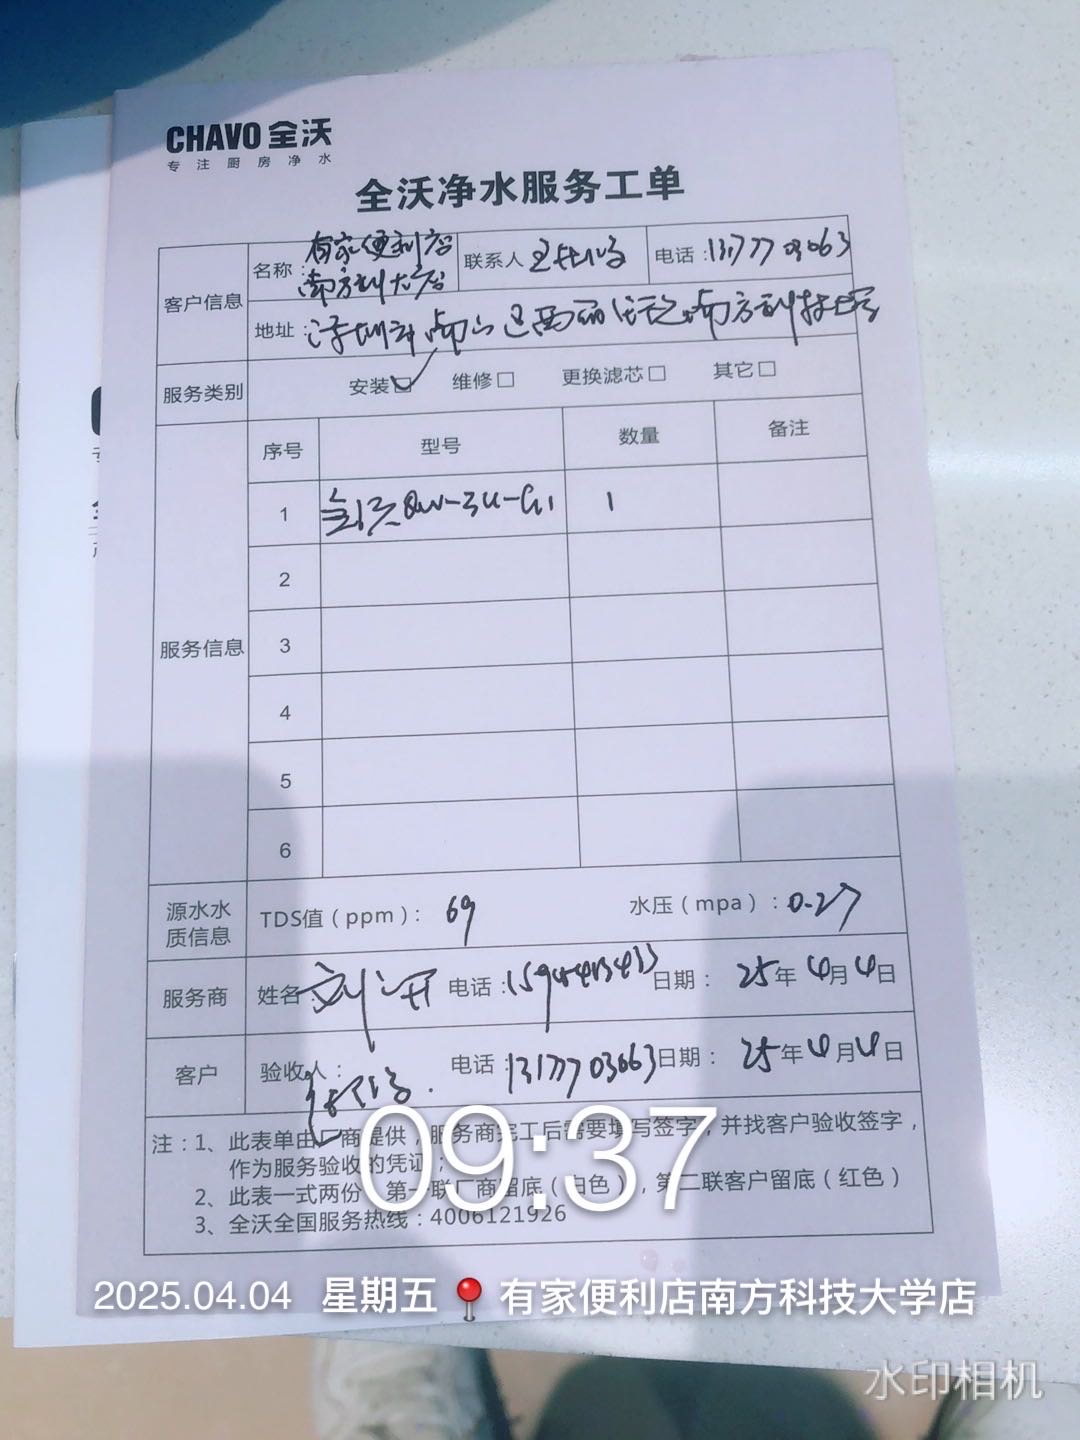 CHAVO 全沃
专注厨房净水
全沃净水服务工单
客户信息
名称：有家便利店
南方科大店
联系人
电话：13177703063
地址：深圳市南山区西丽街道南方科技大学
服务类别
安装☑ 维修□ 更换滤芯□ 其它□
服务信息
序号 型号 数量 备注
1 全沃 1
2
3
4
5
6
源水水质信息
TDS值（ppm）：69 水压（mpa）：0.27
服务商
姓名 刘 电话：15944413433 日期：25年4月4日
客户
验收人： 电话：13177703063 日期：25年4月4日
注：1、此表单由厂商提供，服务商完工后需要填写签字，并找客户验收签字，
作为服务验收的凭证；
2、此表一式两份，第一联厂商留底（白色），第二联客户留底（红色）
3、全沃全国服务热线：4006121926
09:37
2025.04.04 星期五 有家便利店南方科技大学店
水印相机